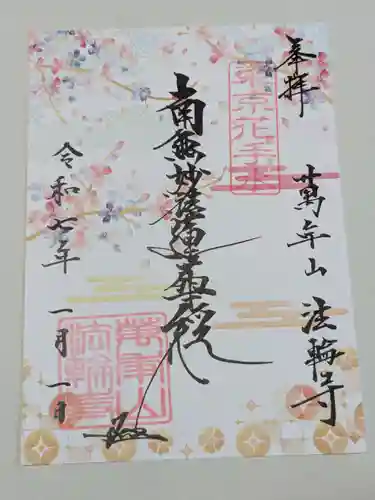 奉拝
萬年山 法輪寺
東京花手水
南無妙法蓮華経
令和七年 一月一日
萬年山
法輪寺